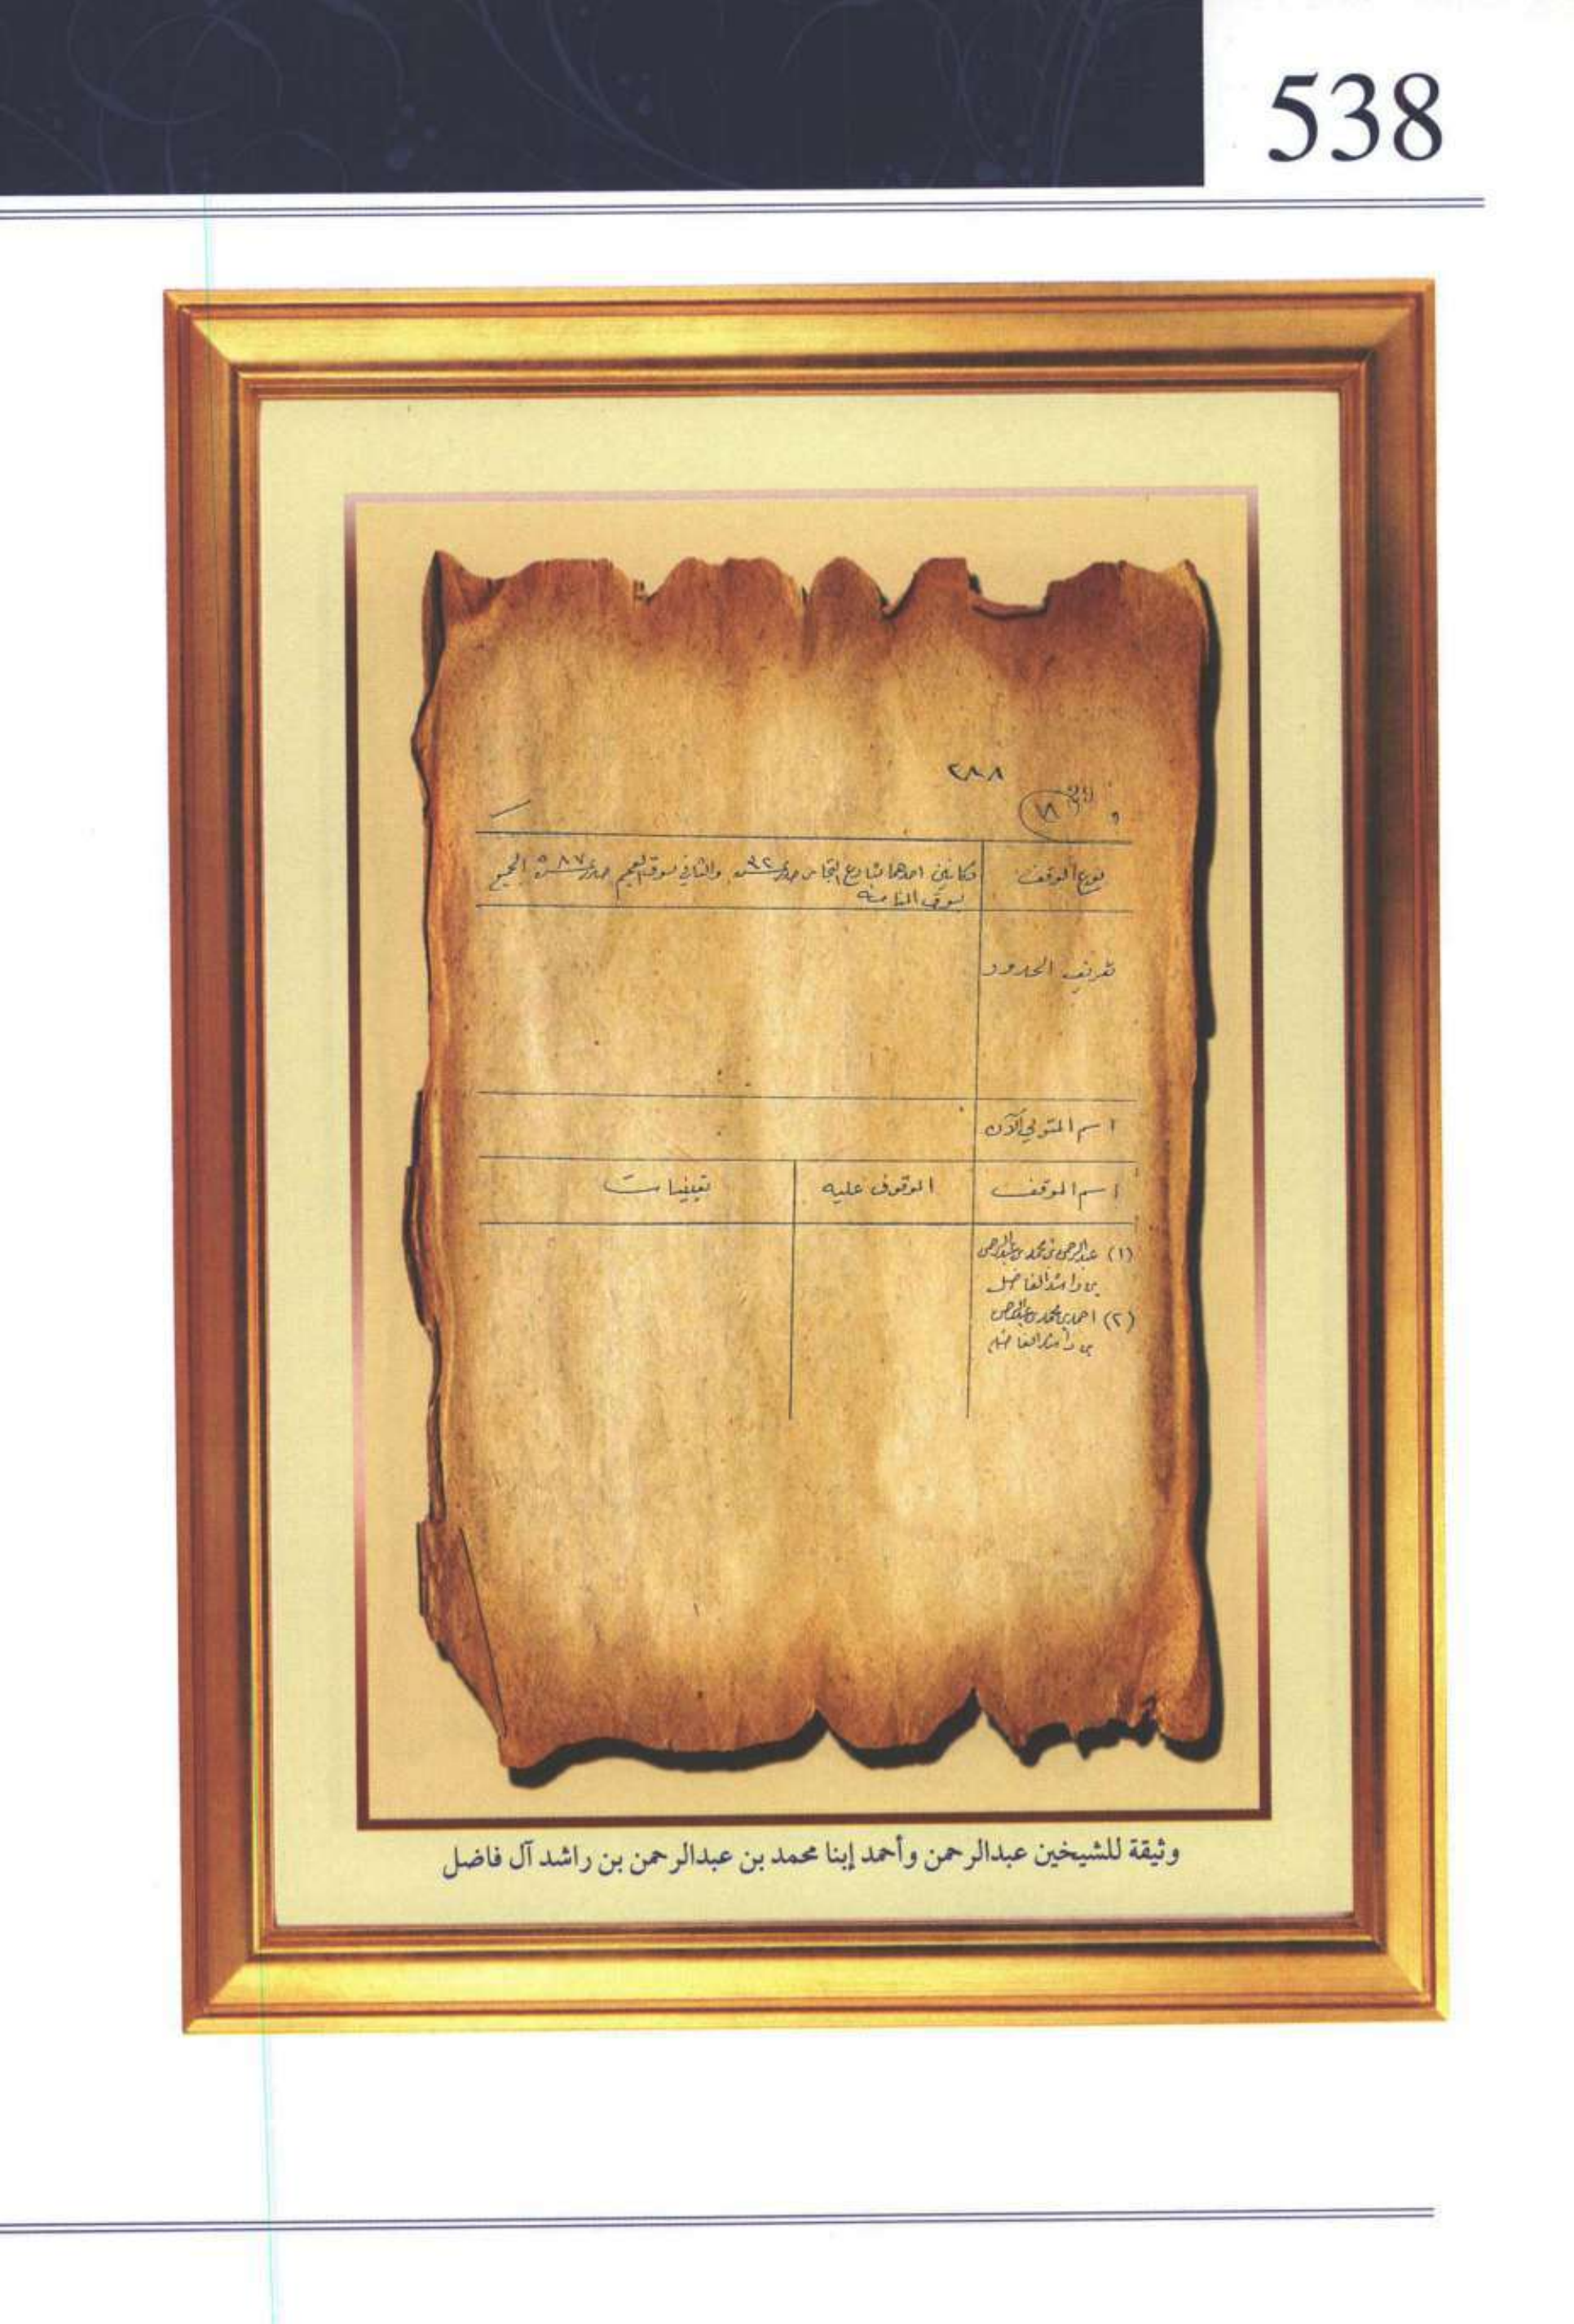 538
٢٨٨
29
و ١٨
نوع الوقف
دكانين احدهما شارع التجار والثاني بسوق العجم الجميع
بسوق المنامه
تعريف الحدود
اسم المتولي الآن
اسم الموقف الموقوف عليه تعيينات
(١) عبدالرحمن بن محمد بن عبدالرحمن
بن راشد الفاضل
(٢) احمد بن محمد بن عبدالرحمن
بن راشد الفاضل
وثيقة للشيخين عبدالرحمن وأحمد إبنا محمد بن عبدالرحمن بن راشد آل فاضل